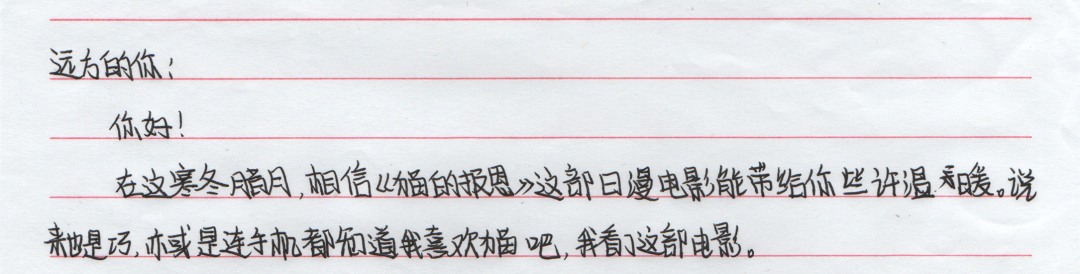 远方的你：
你好！
在这寒冬腊月，相信《猫的报恩》这部日漫电影能带给你些许温暖。说
来也是巧，亦或是连手机都知道我喜欢猫吧，我看了这部电影。